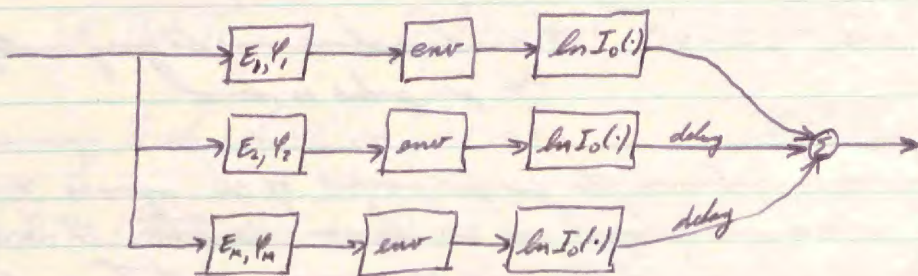 E₁, φ₁ env ln I₀(·)
E₂, φ₂ env ln I₀(·) delay Σ
E_M, φ_M env ln I₀(·) delay